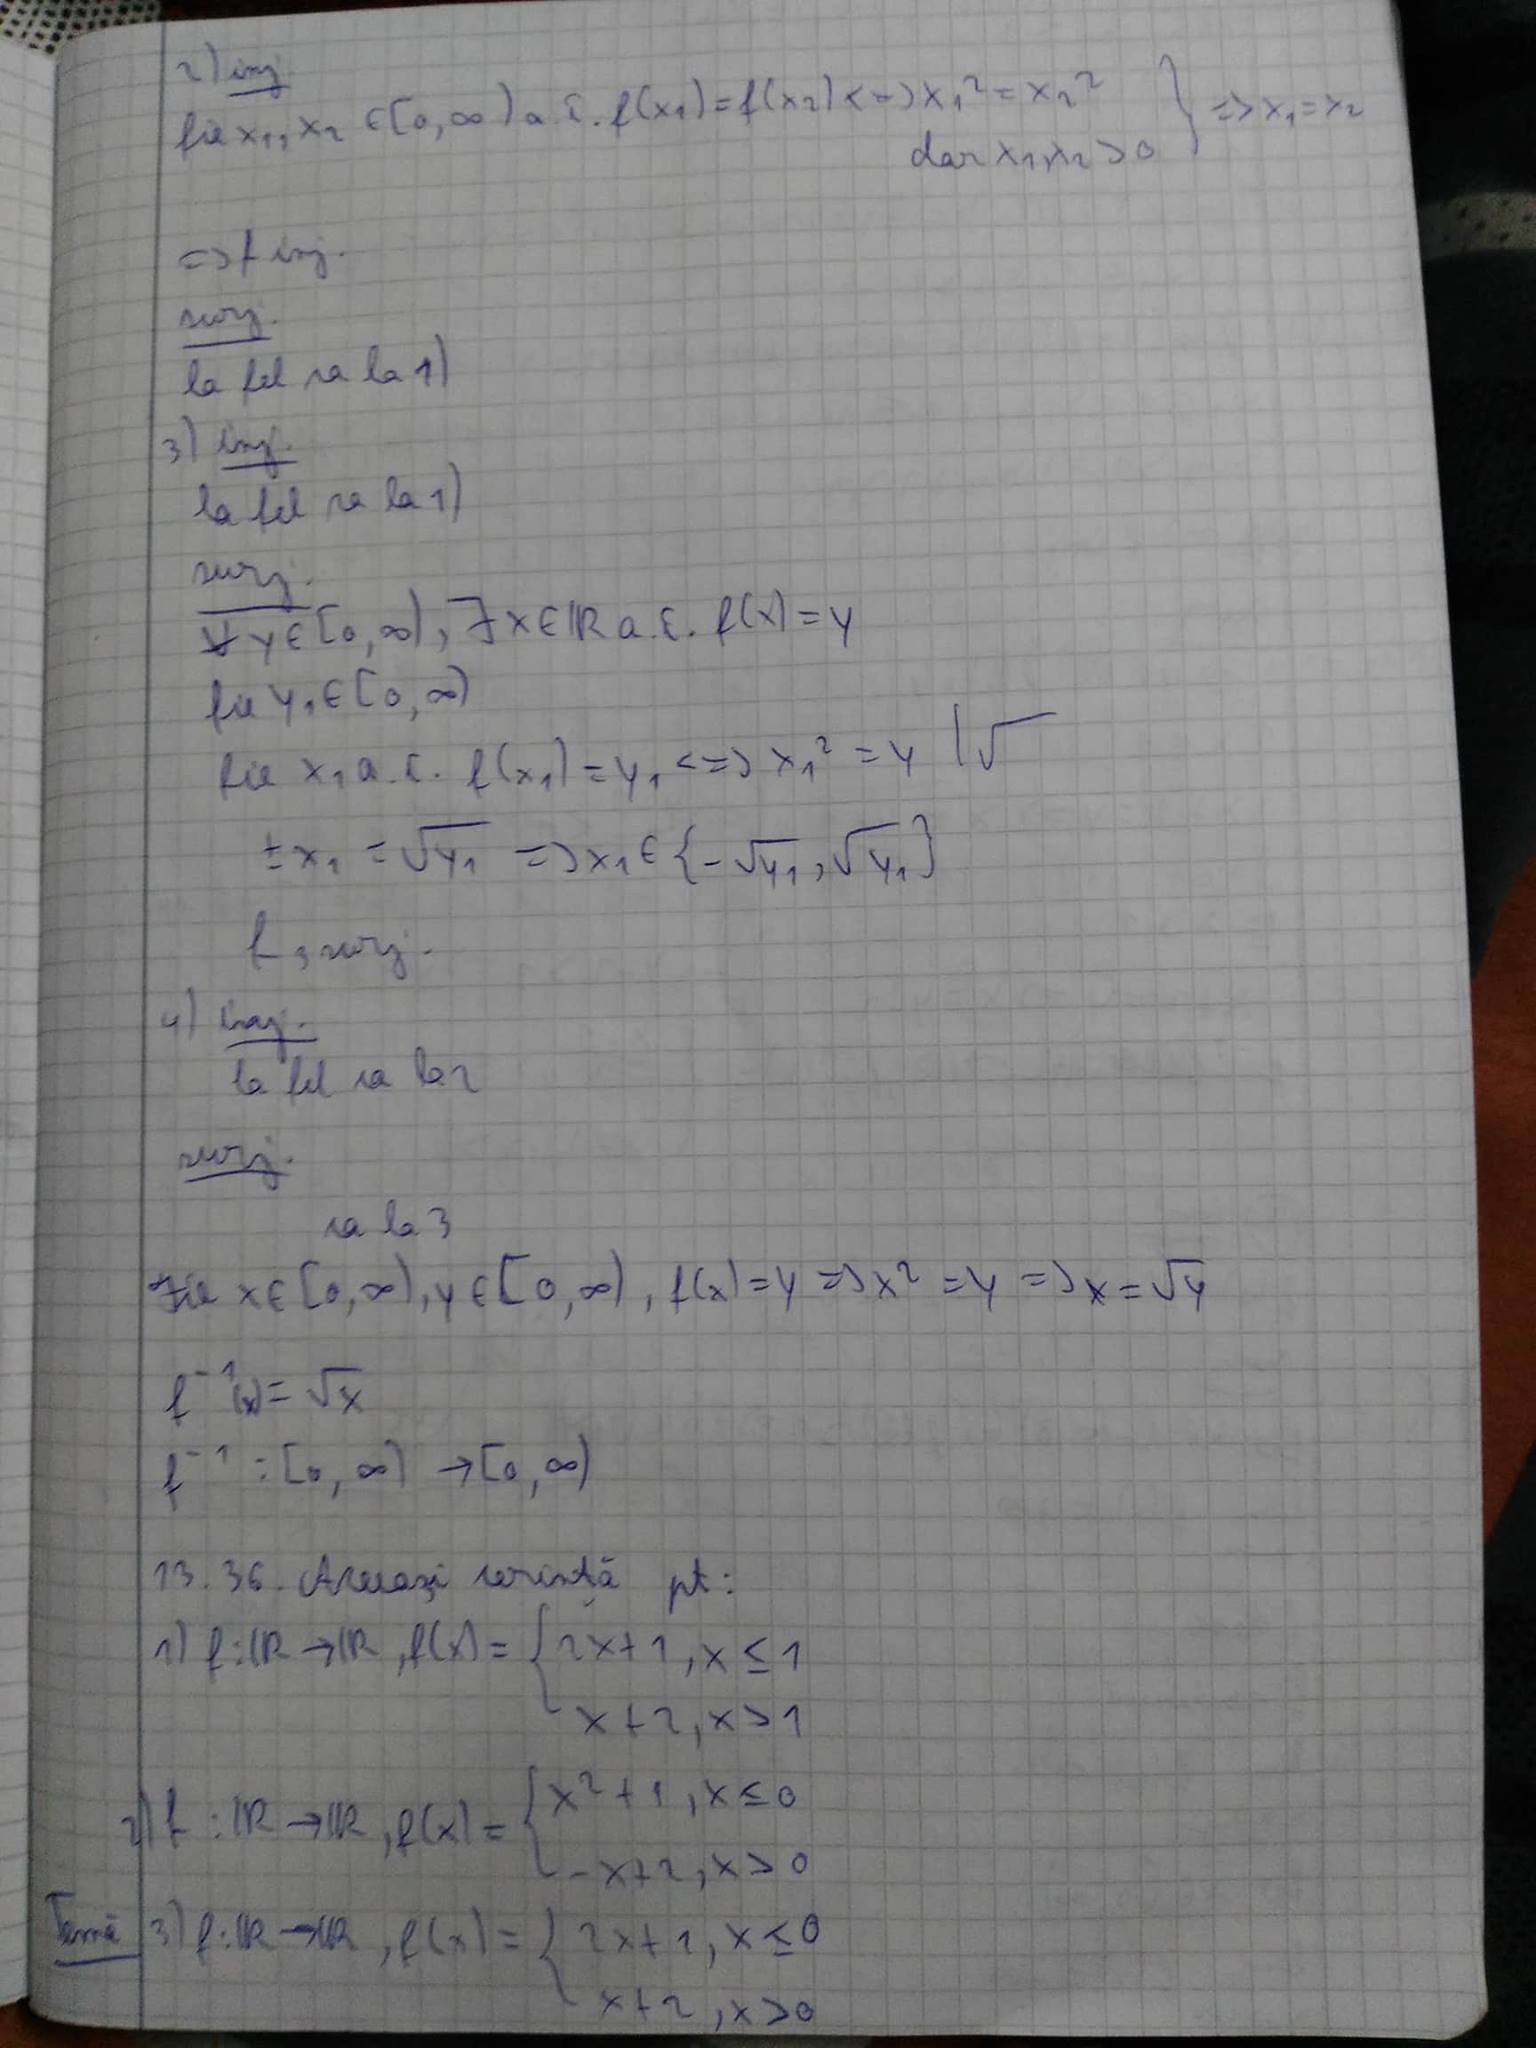 2) inj
fie x₁, x₂ ∈ [0, ∞) a.î. f(x₁) = f(x₂) <=> x₁² = x₂² } => x₁ = x₂
dar x₁, x₂ > 0
=> f inj.
surj.
la fel ca la 1)
3) inj.
la fel ca la 1)
surj.
∀ y ∈ [0, ∞), ∃ x ∈ ℝ a.î. f(x) = y
fie y₁ ∈ [0, ∞)
fie x₁ a.î. f(x₁) = y₁ <=> x₁² = y |√
± x₁ = √y₁ => x₁ ∈ {-√y₁, √y₁}
f surj.
4) inj.
la fel ca la 2
surj.
ca la 3
Fie x ∈ [0, ∞), y ∈ [0, ∞), f(x) = y => x² = y => x = √y
f⁻¹(x) = √x
f⁻¹ : [0, ∞) → [0, ∞)
13.36. Aceeași cerință pt:
1) f : ℝ → ℝ, f(x) = { 2x+1, x ≤ 1
x+2, x > 1
2) f : ℝ → ℝ, f(x) = { x²+1, x ≤ 0
-x+2, x > 0
Temă 3) f : ℝ → ℝ, f(x) = { 2x+1, x ≤ 0
x+2, x > 0